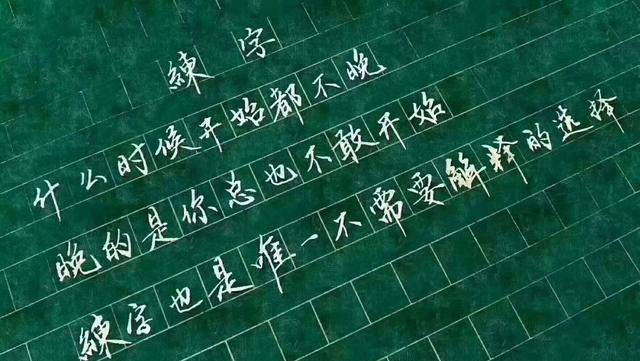 練字
什么时候开始都不晚
晚的是你总也不敢开始
練字也是唯一不需要解释的选择